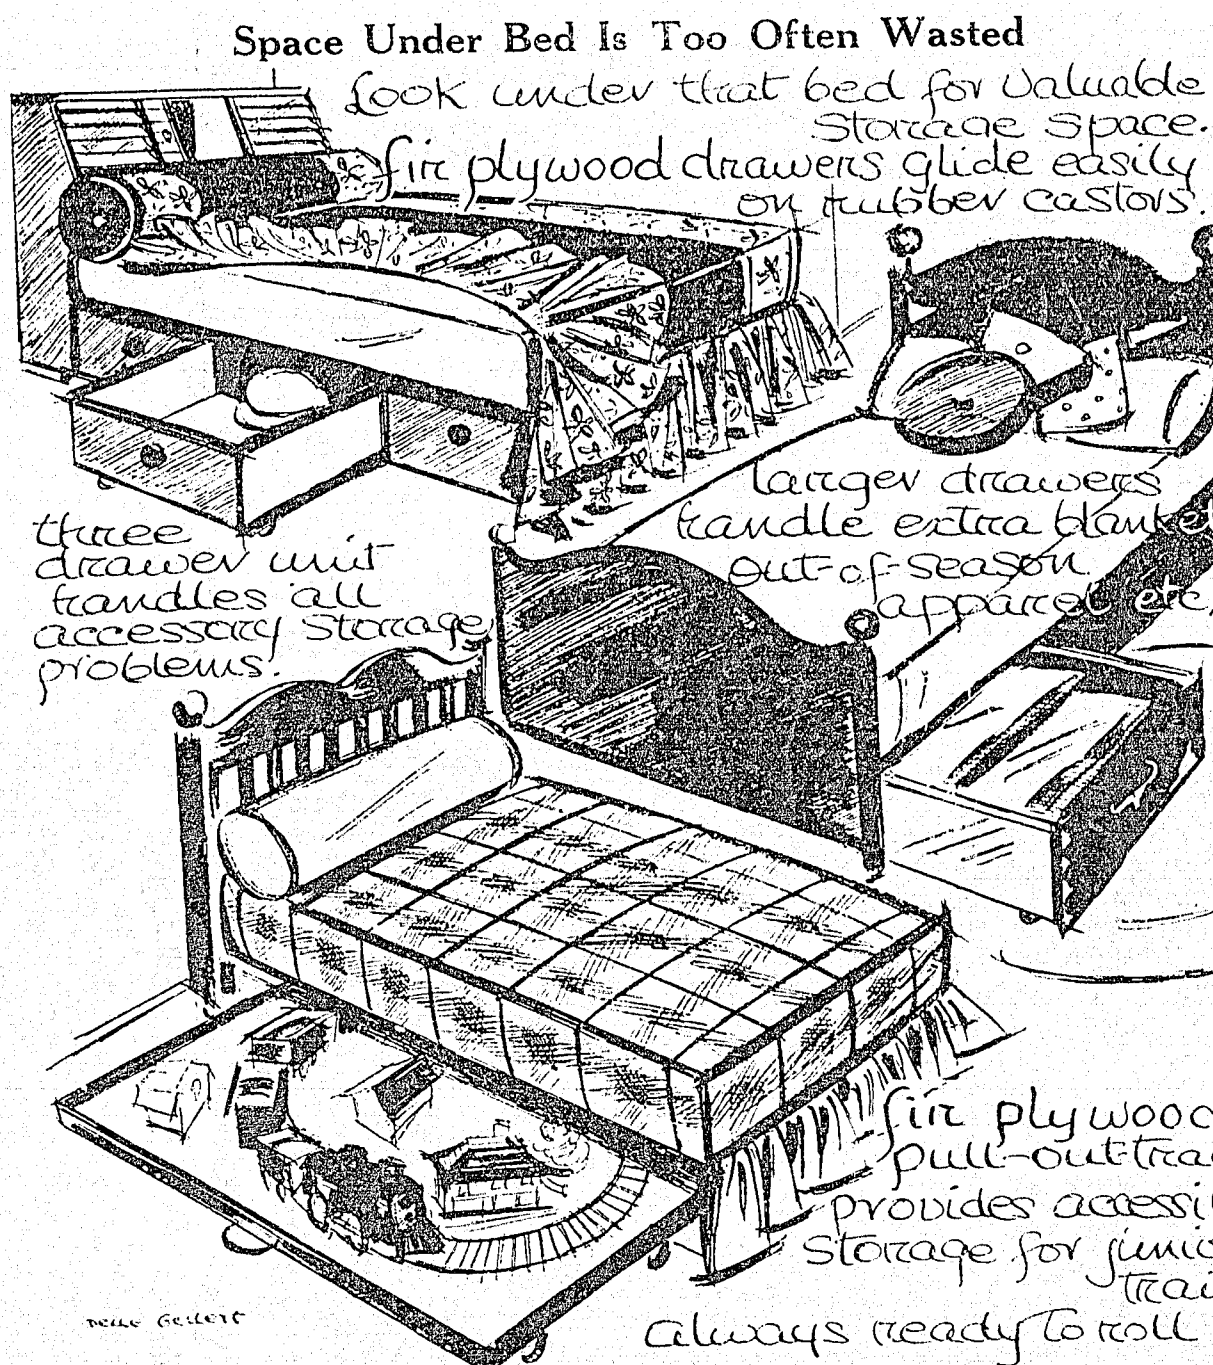 Space Under Bed Is Too Often Wasted
Look under that bed for valuable
storage space.
fir plywood drawers glide easily
on rubber castors.
larger drawers
handle extra blanket
out-of-season
apparel etc.
three
drawer unit
handles all
accessory storage
problems.
fir plywood
pull-out-tra
provides accessi
storage for junio
trai
always ready to roll